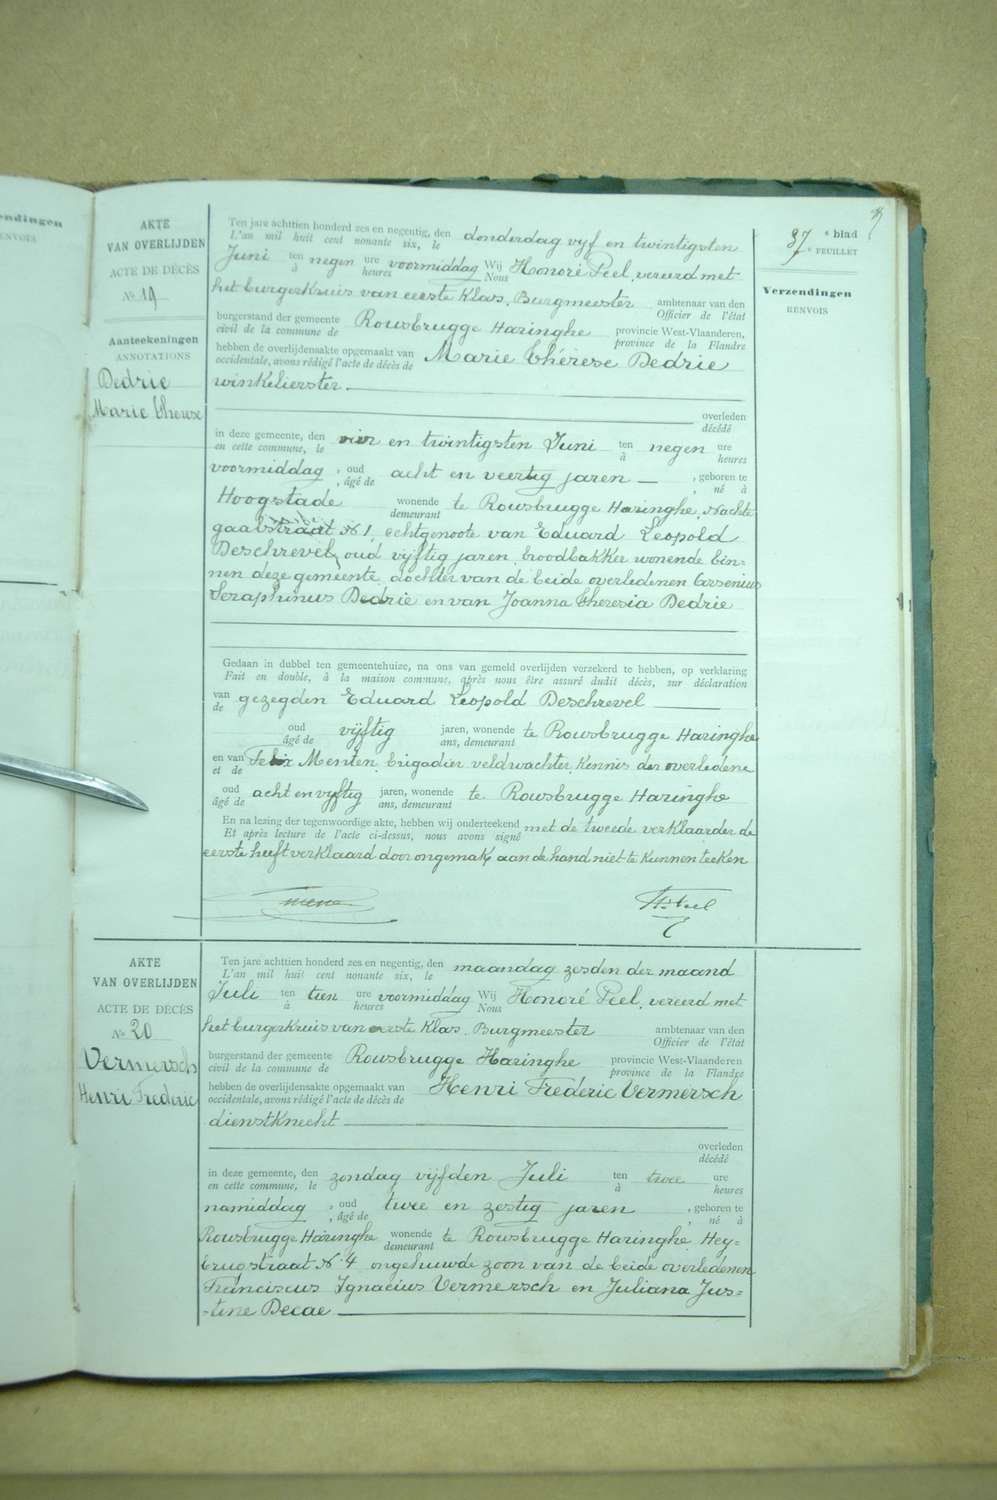 endingen
ENVOIS
AKTE
VAN OVERLIJDEN
ACTE DE DÉCÈS
No 19
Aanteekeningen
ANNOTATIONS
Dedrie
Marie Therese
Ten jare achttien honderd zes en negentig, den donderdag vijf en twintigsten
L'an mil huit cent nonante six, le
Juni ten negen ure voormiddag Wij Honoré Peel, vereerd met
à heures Nous
het burgerkruis van eerste Klas, Burgmeester ambtenaar van den
Officier de l'état
burgerstand der gemeente Rousbrugge Haringhe provincie West-Vlaanderen,
civil de la commune de province de la Flandre
hebben de overlijdensakte opgemaakt van Marie Thérèse Dedrie
occidentale, avons rédigé l'acte de décès de
winkelierster
overleden
décédé
in deze gemeente, den vier en twintigsten Juni ten negen ure
en cette commune, le à heures
voormiddag , oud acht en veertig jaren , geboren te
, âgé de , né à
Hoogstade wonende te Rousbrugge Haringhe, Nachte
demeurant
gaalstraat No 1, echtgenoote van Eduard Leopold
Deschrevel, oud vijftig jaren, broodbakker wonende bin-
nen deze gemeente, dochter van de beide overledenen Arsenius
Seraphinus Dedrie en van Joanna Theresia Dedrie
Gedaan in dubbel ten gemeentehuize, na ons van gemeld overlijden verzekerd te hebben, op verklaring
Fait en double, à la maison commune, après nous être assuré dudit décès, sur déclaration
van gezegden Eduard Leopold Deschrevel
de
oud vijftig jaren, wonende te Rousbrugge Haringhe
âgé de ans, demeurant
en van Felix Menten, brigadier veldwachter, Kennis der overledene
et de
oud acht en vijftig jaren, wonende te Rousbrugge Haringhe
âgé de ans, demeurant
En na lezing der tegenwoordige akte, hebben wij onderteekend met de tweede verklaarder de
Et après lecture de l'acte ci-dessus, nous avons signé
eerste heeft verklaard door ongemak aan de hand niet te Kunnen teeken
H. Peel
87e blad
e FEUILLET
Verzendingen
RENVOIS
AKTE
VAN OVERLIJDEN
ACTE DE DÉCÈS
No 20
Vermersch
Henri Frederic
Ten jare achttien honderd zes en negentig, den maandag zesden der maand
L'an mil huit cent nonante six, le
Juli ten tien ure voormiddag Wij Honoré Peel, vereerd met
à heures Nous
het burgerkruis van eerste Klas, Burgmeester ambtenaar van den
Officier de l'état
burgerstand der gemeente Rousbrugge Haringhe provincie West-Vlaanderen
civil de la commune de province de la Flandre
hebben de overlijdensakte opgemaakt van Henri Frederic Vermersch
occidentale, avons rédigé l'acte de décès de
dienstknecht
overleden
décédé
in deze gemeente, den zondag vijfden Juli ten twee ure
en cette commune, le à heures
namiddag , oud twee en zestig jaren , geboren te
, âgé de , né à
Rousbrugge Haringhe wonende te Rousbrugge Haringhe, Hey-
demeurant
brugstraat No 4 ongehuwde zoon van de beide overledenen
Franciscus Ignacius Vermersch en Juliana Jus-
-tine Decae